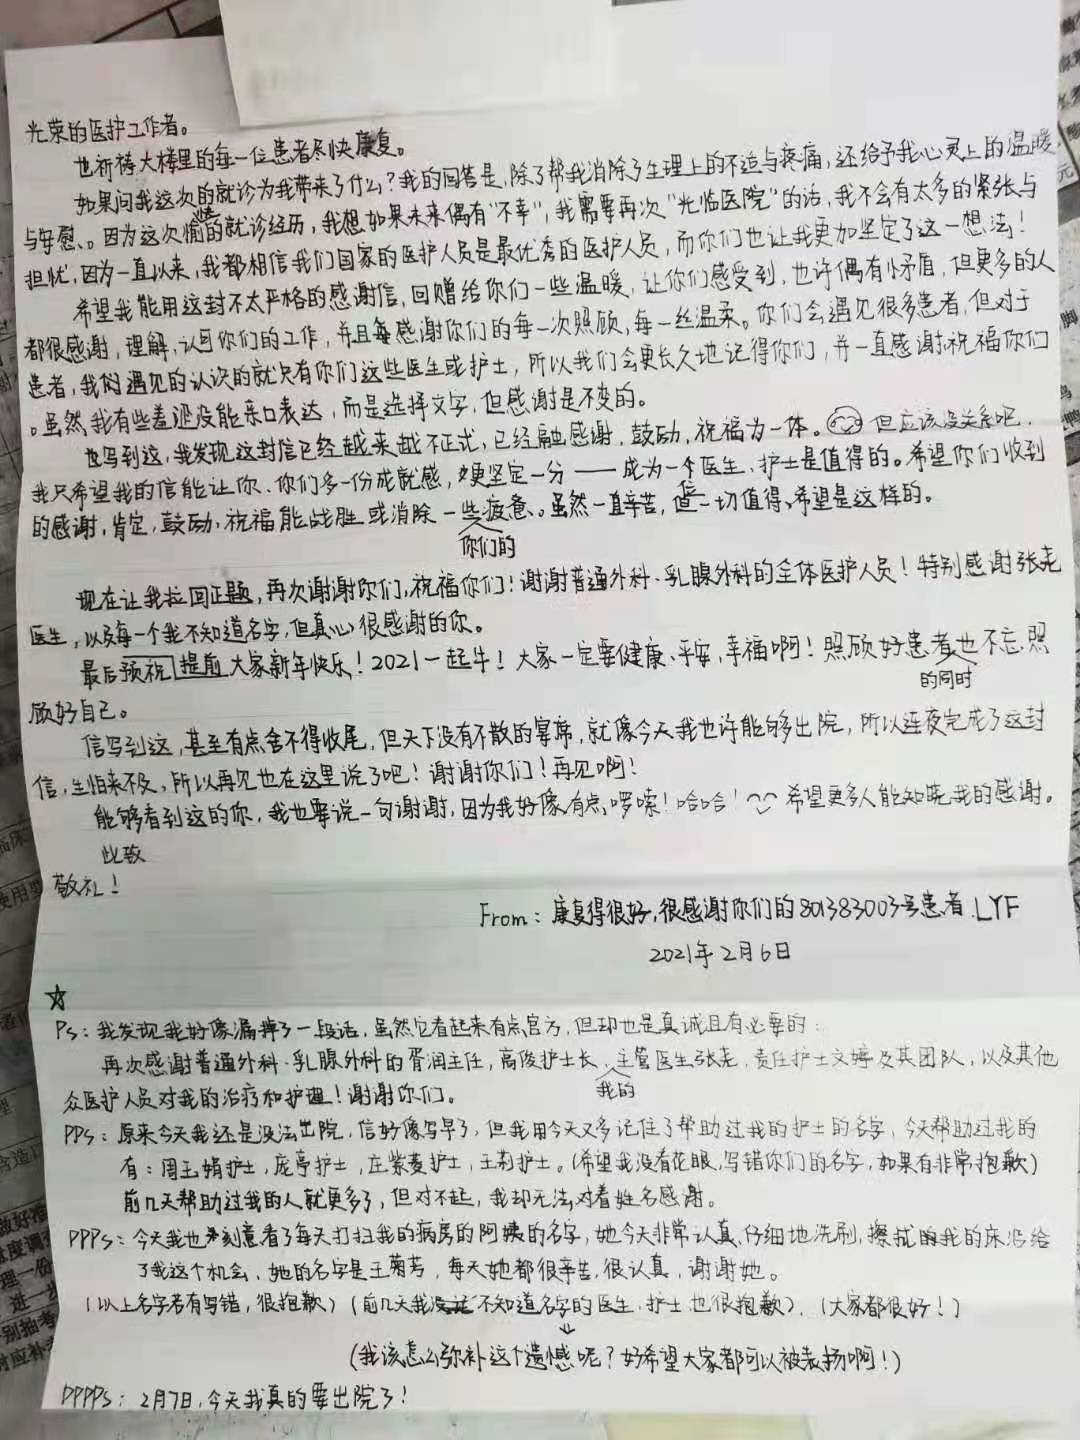 光荣的医护工作者。
也祈祷大楼里的每一位患者尽快康复。
如果问我这次的就诊为我带来了什么？我的回答是，除了帮我消除了生理上的不适与疼痛，还给予我心灵上的温暖
与安慰、。因为这次愉快的就诊经历，我想如果未来偶有“不幸”，我需要再次“光临医院”的话，我不会有太多的紧张与
担忧，因为一直以来，我都相信我们国家的医护人员是最优秀的医护人员，而你们也让我更加坚定了这一想法！
希望我能用这封不太严格的感谢信，回赠给你们一些温暖，让你们感受到，也许偶有小矛盾，但更多的人
都很感谢，理解，认同你们的工作，并且每感谢你们的每一次照顾，每一丝温柔。你们会遇见很多患者，但对于
患者，我们遇见的认识的就只有你们这些医生或护士，所以我们会更长久地记得你们，并一直感谢、祝福你们
。虽然我有些羞涩没能亲口表达，而是选择文字，但感谢是不变的。
也写到这，我发现这封信已经越来越不正式，已经融感谢，鼓励，祝福为一体。但应该没关系吧，
我只希望我的信能让你、你们多一份成就感，更坚定一分——成为一个医生、护士是值得的。希望你们收到
的感谢，肯定，鼓励，祝福能战胜或消除一些疲惫、。虽然一直辛苦，但一切值得，希望是这样的。
你们的
现在让我拉回正题，再次谢谢你们，祝福你们！谢谢普通外科·乳腺外科的全体医护人员！特别感谢张尧
医生，以及每一个我不知道名字，但真心很感谢的你。
最后预祝提前大家新年快乐！2021一起牛！大家一定要健康、平安，幸福啊！照顾好患者也不忘照
的同时
顾好自己。
信写到这，甚至有点舍不得收尾，但天下没有不散的宴席，就像今天我也许能够出院，所以连夜完成了这封
信，生怕来不及，所以再见也在这里说了吧！谢谢你们！再见啊！
能够看到这的你，我也要说一句谢谢，因为我好像有点啰嗦！哈哈！希望更多人能知晓我的感谢。
此致
敬礼！
From：康复得很好，很感谢你们的801383003号患者.LYF
2021年2月6日
☆
Ps：我发现我好像漏掉了一段话，虽然它看起来有点官方，但却也是真诚且有必要的：
再次感谢普通外科·乳腺外科的胥润主任，高俊护士长、主管医生张尧，责任护士文婷及其团队，以及其他
我的
众医护人员对我的治疗和护理！谢谢你们。
PPs：原来今天我还是没法出院，信好像写早了，但我用今天又多记住了帮助过我的护士的名字，今天帮助过我的
有：周玉娟护士，庞亭护士，庄紫菱护士，王莉护士。（希望我没有花眼，写错你们的名字，如果有非常抱歉）
前几天帮助过我的人就更多了，但对不起，我却无法对着姓名感谢。
PPPs：今天我也刻意看了每天打扫我的病房的阿姨的名字，她今天非常认真、仔细地洗刷，擦拭我的床沿给
了我这个机会，她的名字是王菊芳，每天她都很辛苦，很认真，谢谢她。
（以上名字若有写错，很抱歉）（前几天我不知道名字的医生、护士也很抱歉）、（大家都很好！）
（我该怎么弥补这个遗憾呢？好希望大家都可以被表扬啊！）
PPPPs：2月7日，今天我真的要出院了！